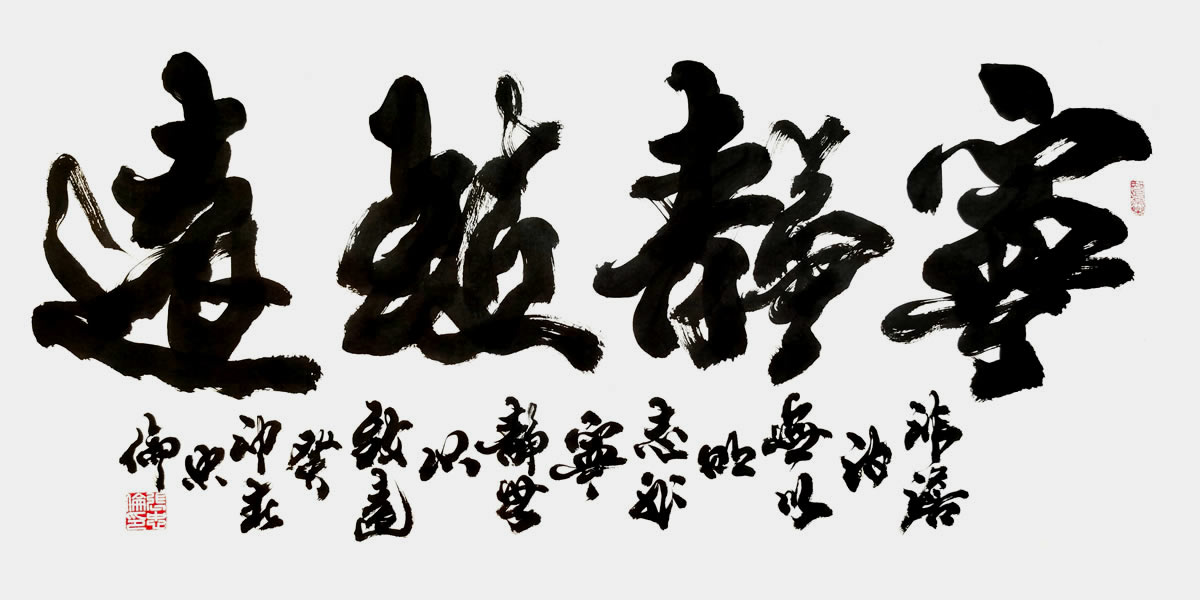 寧靜致遠
非澹泊無以明志非寧靜無以致遠
癸仲春
忠倫